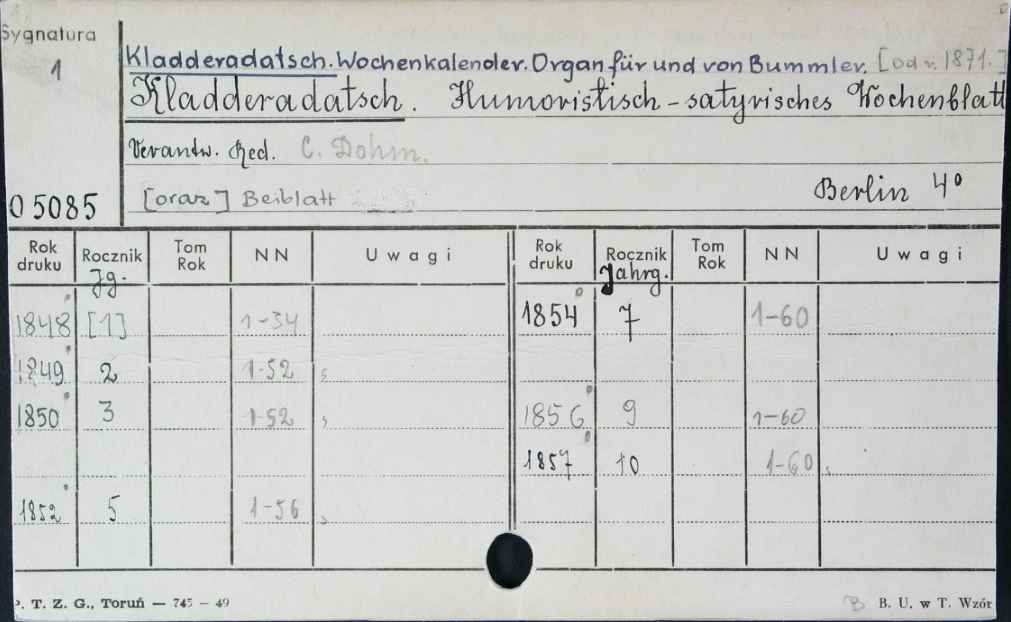 Sygnatura
1
Kladderadatsch. Wochenkalender. Organ für und von Bummler. [od r. 1871.]
Kladderadatsch. Humoristisch-satyrisches Wochenblatt
Verantw. Red. C. Dohm.
Berlin 4°
O 5085 [oraz] Beiblatt
Rok druku Rocznik Tom Rok NN Uwagi Rok druku Rocznik Tom Rok NN Uwagi
Jg. Jahrg.
1848 [1] 1-34 1854 7 1-60
1849 2 1-52
1850 3 1-52 1856 9 1-60
1857 10 1-60
1852 5 1-56
P. T. Z. G., Toruń — 745 — 49 B B. U. w T. Wzór